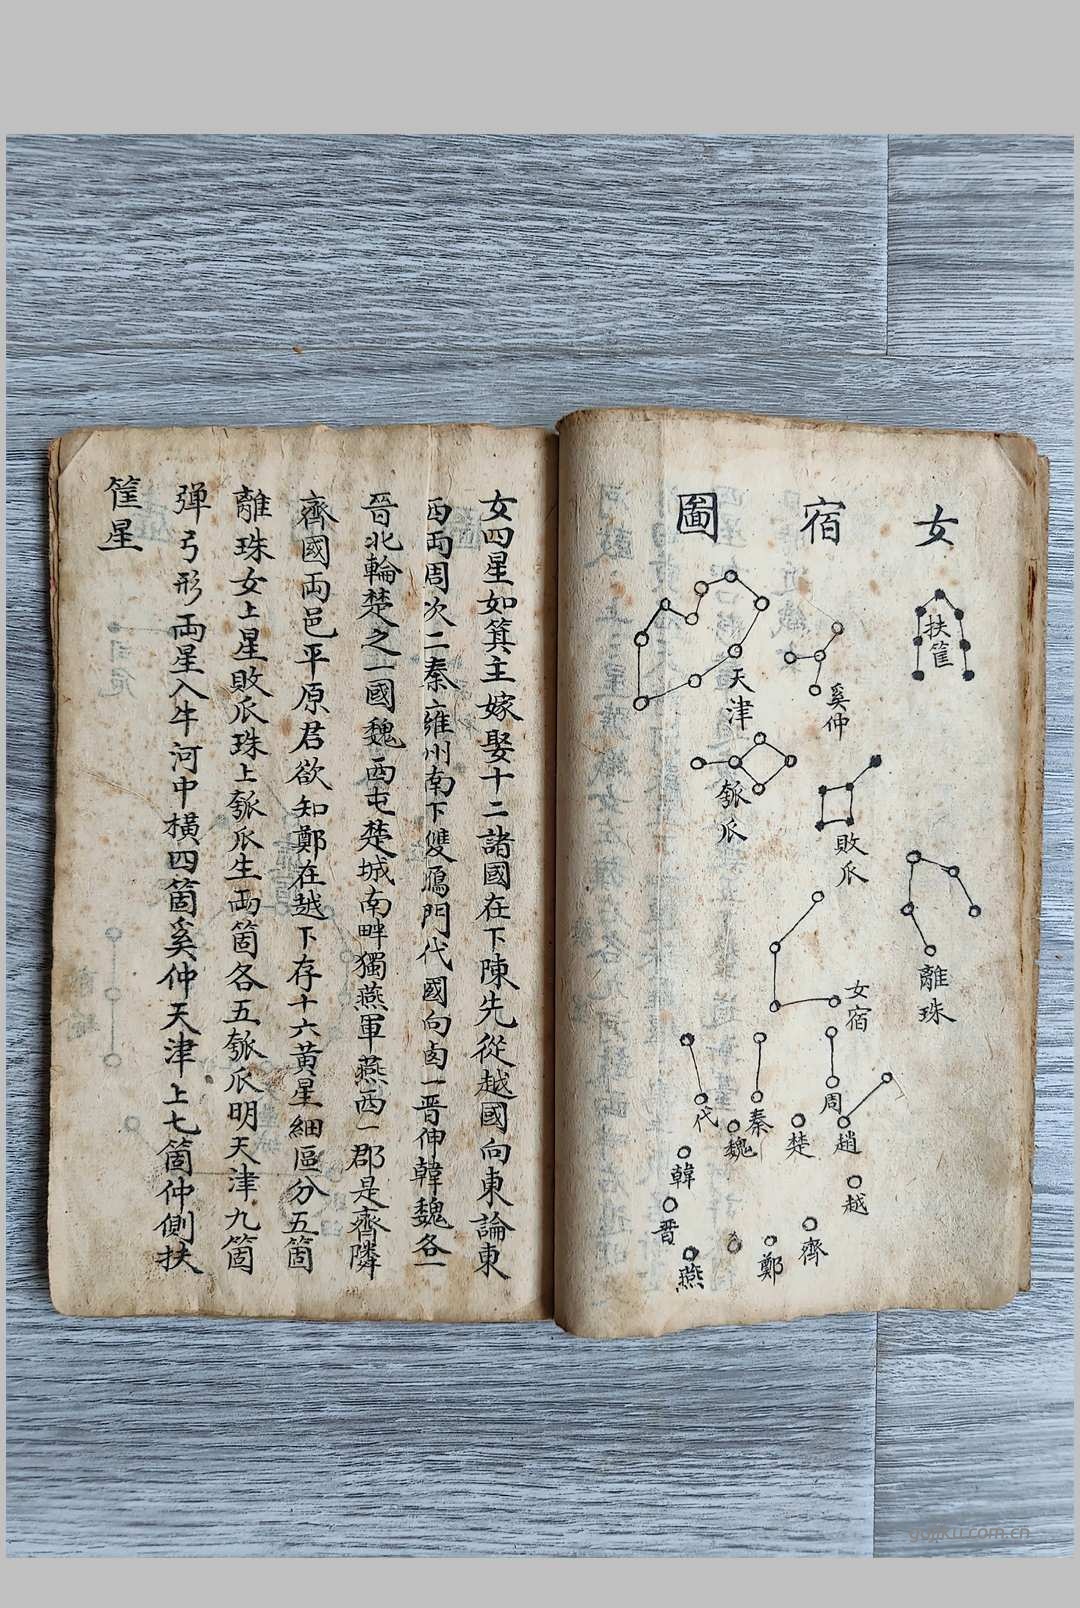 女宿圖
扶筐
奚仲
天津
瓠瓜
敗瓜
離珠
女宿
周
秦
代
趙
楚
魏
韓
越
晉
齊
鄭
燕
女四星如箕主嫁娶十二諸國在下陳先從越國向東論東
西兩周次二秦雍州南下雙鴈門代國向
一晋伸韓魏各一
晉北輪楚之一國魏西屯楚城南畔獨燕軍燕西一郡是齊隣
齊國兩邑平原君欲知鄭在越下存十六黃星細區分五箇
離珠女上星敗瓜珠上瓠瓜生兩箇各五瓠瓜明天津九箇
弹弓形兩星入牛河中橫四箇奚仲天津上七箇仲側扶
筐星
gujiku.com.cn